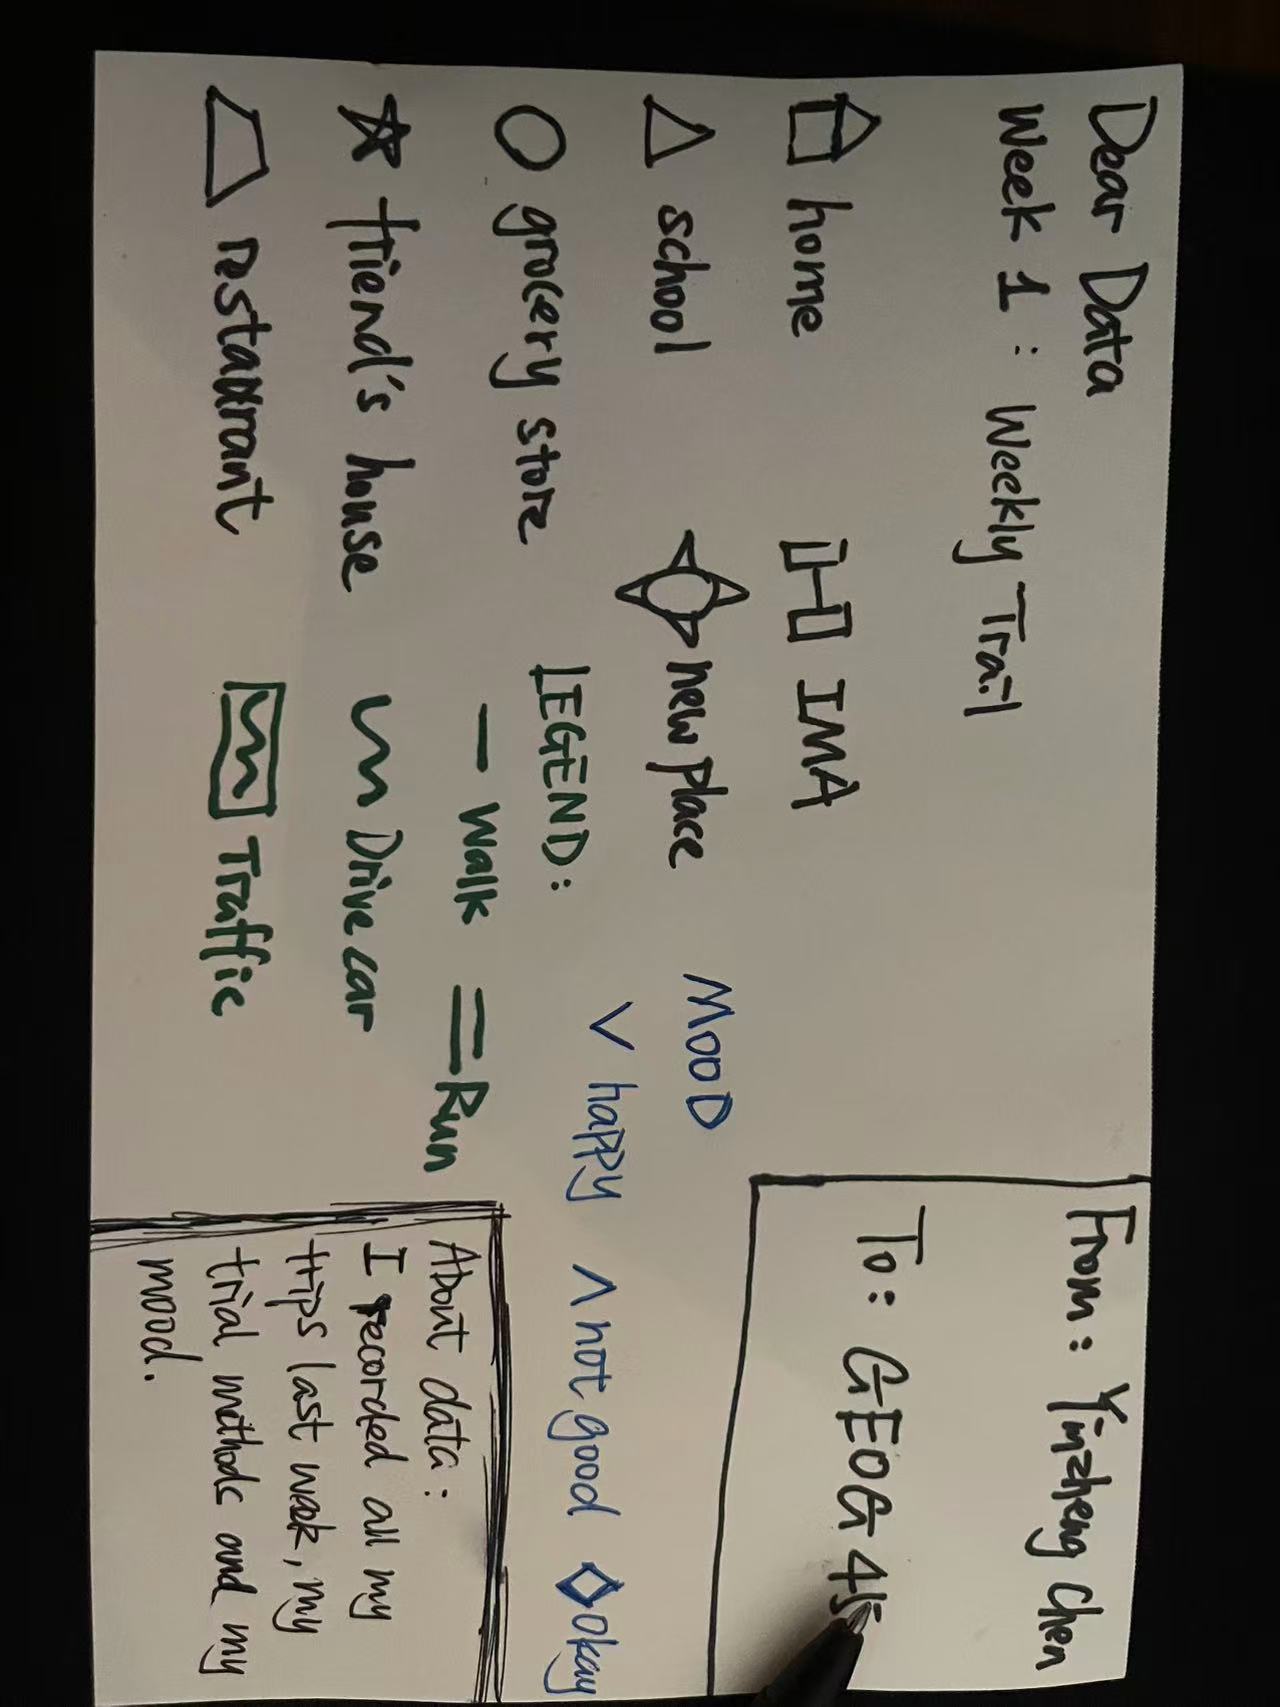 Dear Data
Week 1 : Weekly Trail
home
IMA
school
new place
grocery store
friend's house
restaurant
LEGEND:
Walk
Run
Drive car
Traffic
MOOD
happy
not good
okay
From: Yinzheng Chen
To: GEOG
About data:
I recorded all my
trips last week, my
trial methods and my
mood.